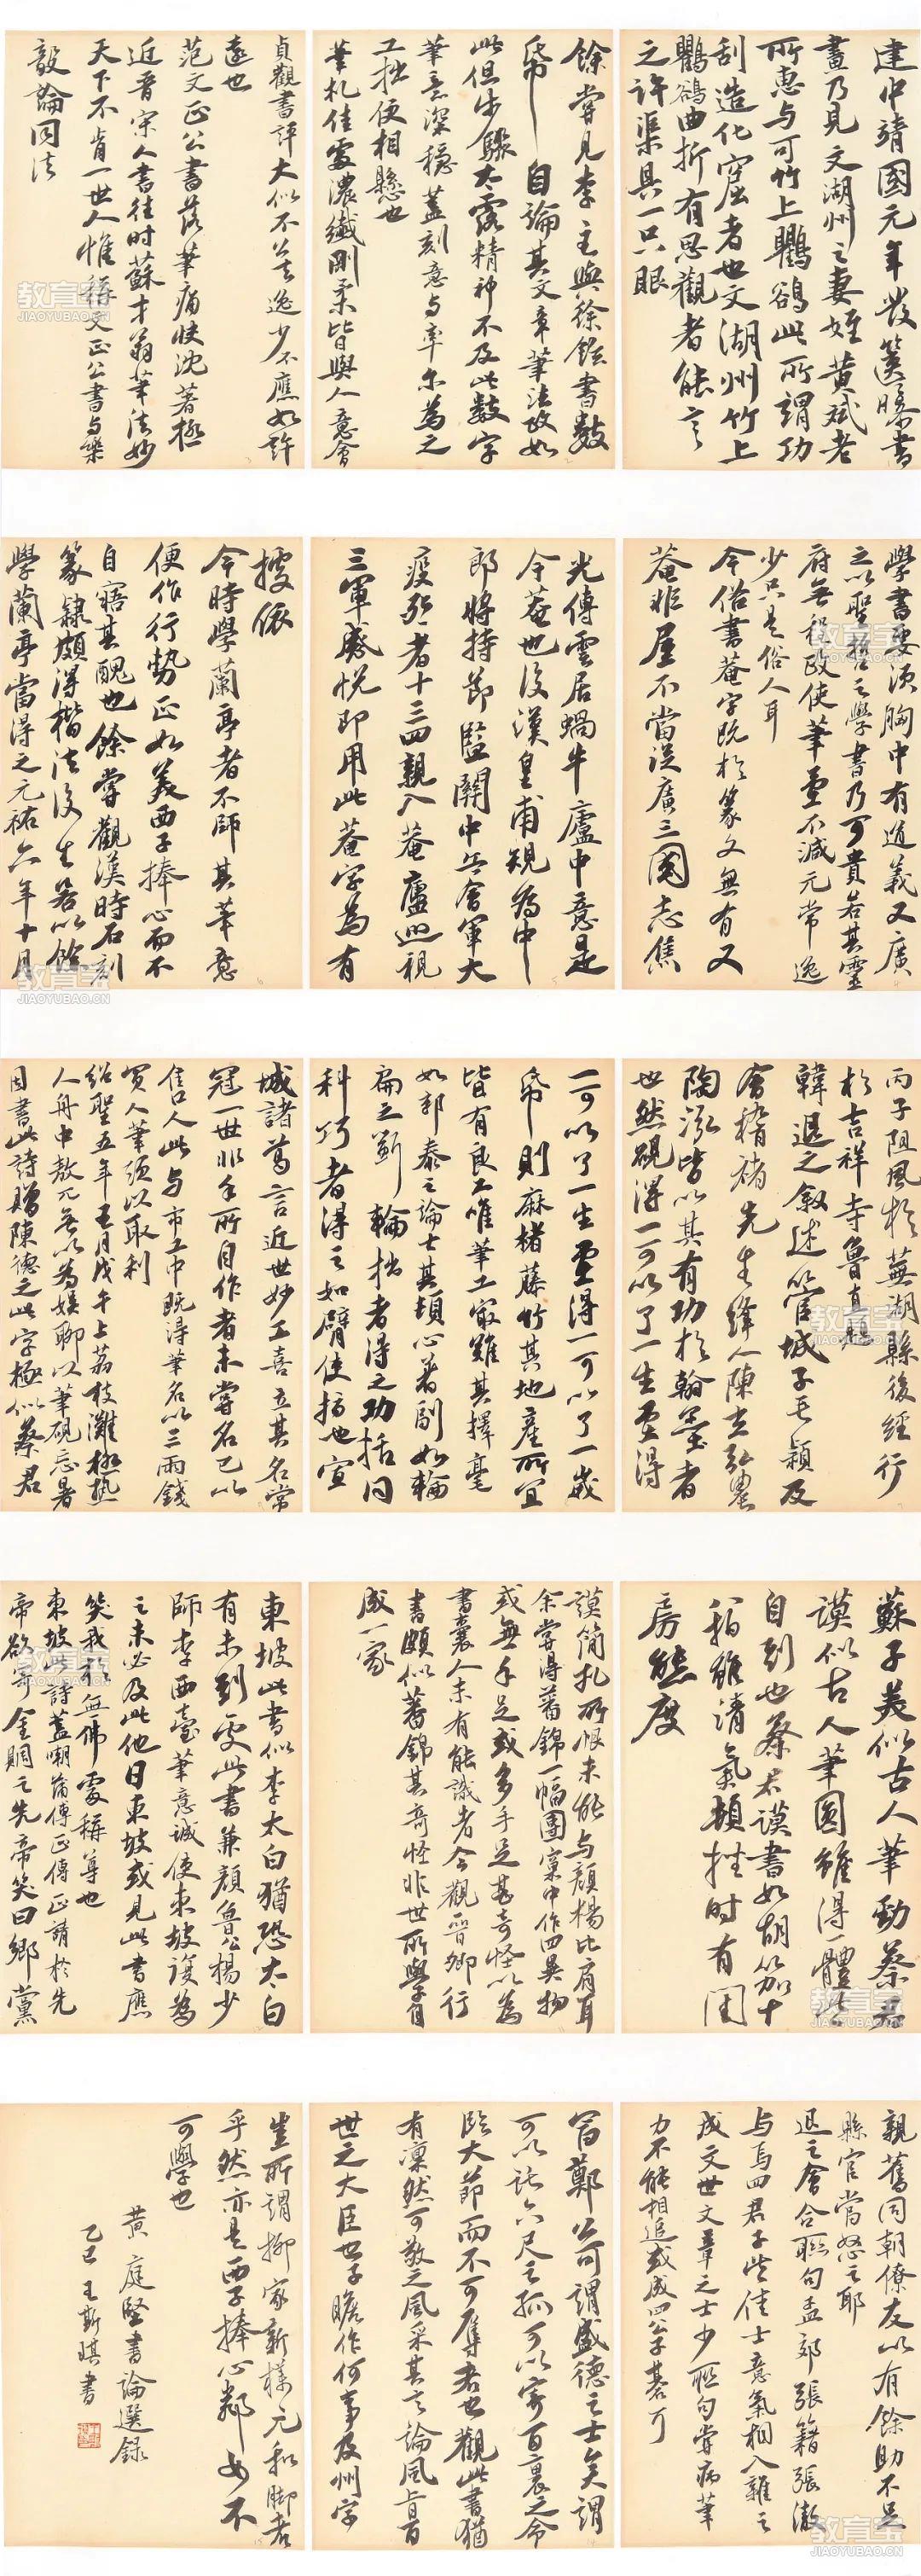 建中靖國元年發篋曝書
畫乃見文湖州之妻姪黄斌老
所惠与可竹上鸜鵒此所謂功
刮造化窟者也文湖州竹上
鸜鵒曲折有思觀者能言
之許渠具一只眼
餘嘗見李主與徐鉉書數
紙自論其文章筆法政如
此但步驟太露精神不及此數字
筆意深穩蓋刻意与率尔為之
工拙便相懸也
筆札佳處濃纖剛柔皆與人意會
貞觀書評大似不公逸少不應如許
遠也
范文正公書落筆痛快沈著極
近晋宋人書往時蘇才翁筆法妙
天下不肯一世人惟稱文正公書与樂
毅論同法
學書要須胸中有道義又廣
之以聖哲之學書乃可貴若其靈
府無程政使筆墨不減元常逸
少只是俗人耳
今俗書菴字既於篆文無有又
菴非屋不當從廣三國志焦
光傳雲居蝸牛廬中意是
今菴也後漢皇甫規為中
郎將持節監關中兵會軍大
疫死者十三四親入菴廬巡視
三軍感悅即用此菴字為有
據依
今時學蘭亭者不師其筆意
便作行勢正如美西子捧心而不
自寤其醜也餘嘗觀漢時石刻
篆隸頗得楷法後生若以餘
學蘭亭當得之元祐六年十月
丙子阻風於蕪湖縣後經行
於吉祥寺魯直題
韓退之敘述管城子毛穎及
會稽褚先生絳人陳玄弘農
陶泓皆以其有功於翰墨者
世然硯得一可以了一生墨得
一可以了一生墨得一可以了一歲
紙則麻楮藤竹其地產所宜
皆有良工唯筆工最難其擇毫
如郭泰之論士其頓心著副如輪
扁之斲輪拙者得之功括同
科巧者得之如臂使指也宣
城諸葛言近世妙工喜立其名常
冠一世非手所自作者未嘗名己以
售人此与市工中既得筆名以三兩錢
買人筆須以取利
紹聖五年五月戊午上荔枝灘極熱
人舟中敖兀無以為娛聊以筆硯忘暑
因書此詩贈陳德之此字極似蔡君
蘇子美似古人筆勁蔡君
謨似古人筆圓雖得一體皆
自到也蔡君謨書如胡笳十
八拍雖清氣頓挫時有閨
房態度
謨簡扎所恨未能与顏楊比肩耳
余嘗得蕃錦一幅團窠中作四異物
或無手足或多手足甚奇怪以為
書囊人未有能識者今觀晉卿行
書頗似蕃錦其奇怪非世所學自
成一家
東坡此書似李太白猶恐太白
有未到處此書兼顏魯公楊少
師李西臺筆意試使東坡復為
之未必及此他日東坡或見此書應
笑我於無佛處稱尊也
東坡此詩蓋嘲蒲傳正傳正請於先
帝欲寄金賙之先帝笑曰鄉黨
親舊同朝僚友以有餘助不足
縣官當怒之耶
退之會合聯句孟郊張籍張澈
与焉四君子皆佳士意氣相入雜之
成文世文章之士少聯句嘗病筆
力不能相追或成四公子棊耳
富鄭公可謂盛德之士矣謂
可以託六尺之孤可以寄百裏之命
臨大節而不可奪者也觀此書猶
有凜然可敬之風采其言論風旨百
世之大臣也子瞻作何事及州字
豈所謂柳家新樣元和腳者
乎然亦是西子捧心鄰女不
可學也
黄庭堅書論選録
乙巳王斯琪書
教育宝
JIAOYUBAO.CN